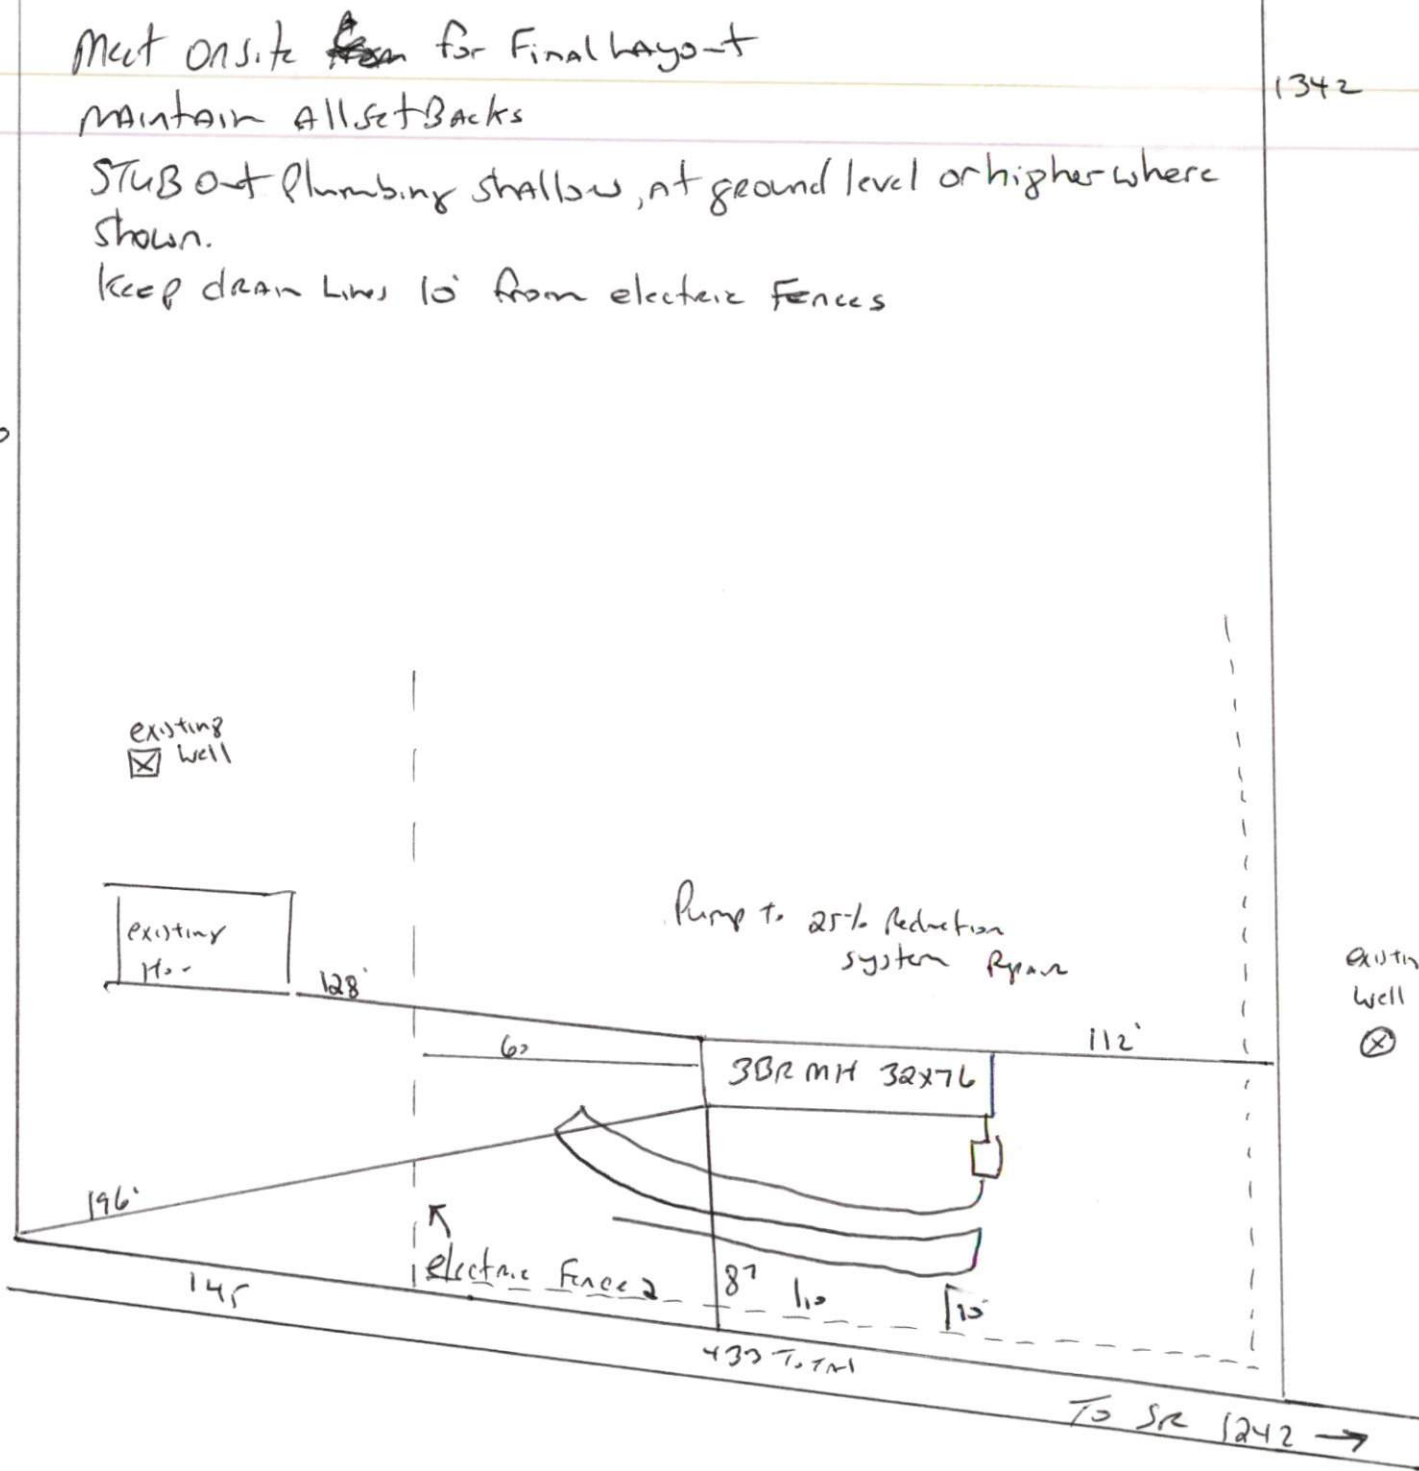 Meet onsite for Final Layout
1342
Maintain All SetBacks
STUB Out Plumbing shallow, at ground level or higher where
shown.
Keep drain Lines 10' from electric Fences
existing
well
existing
128'
Pump to 25% Reduction
system Repair
existin
well
112'
60
3BR MH 32x76
196'
electric Fence
87
10
10'
145
433 Total
To SR 1242 →